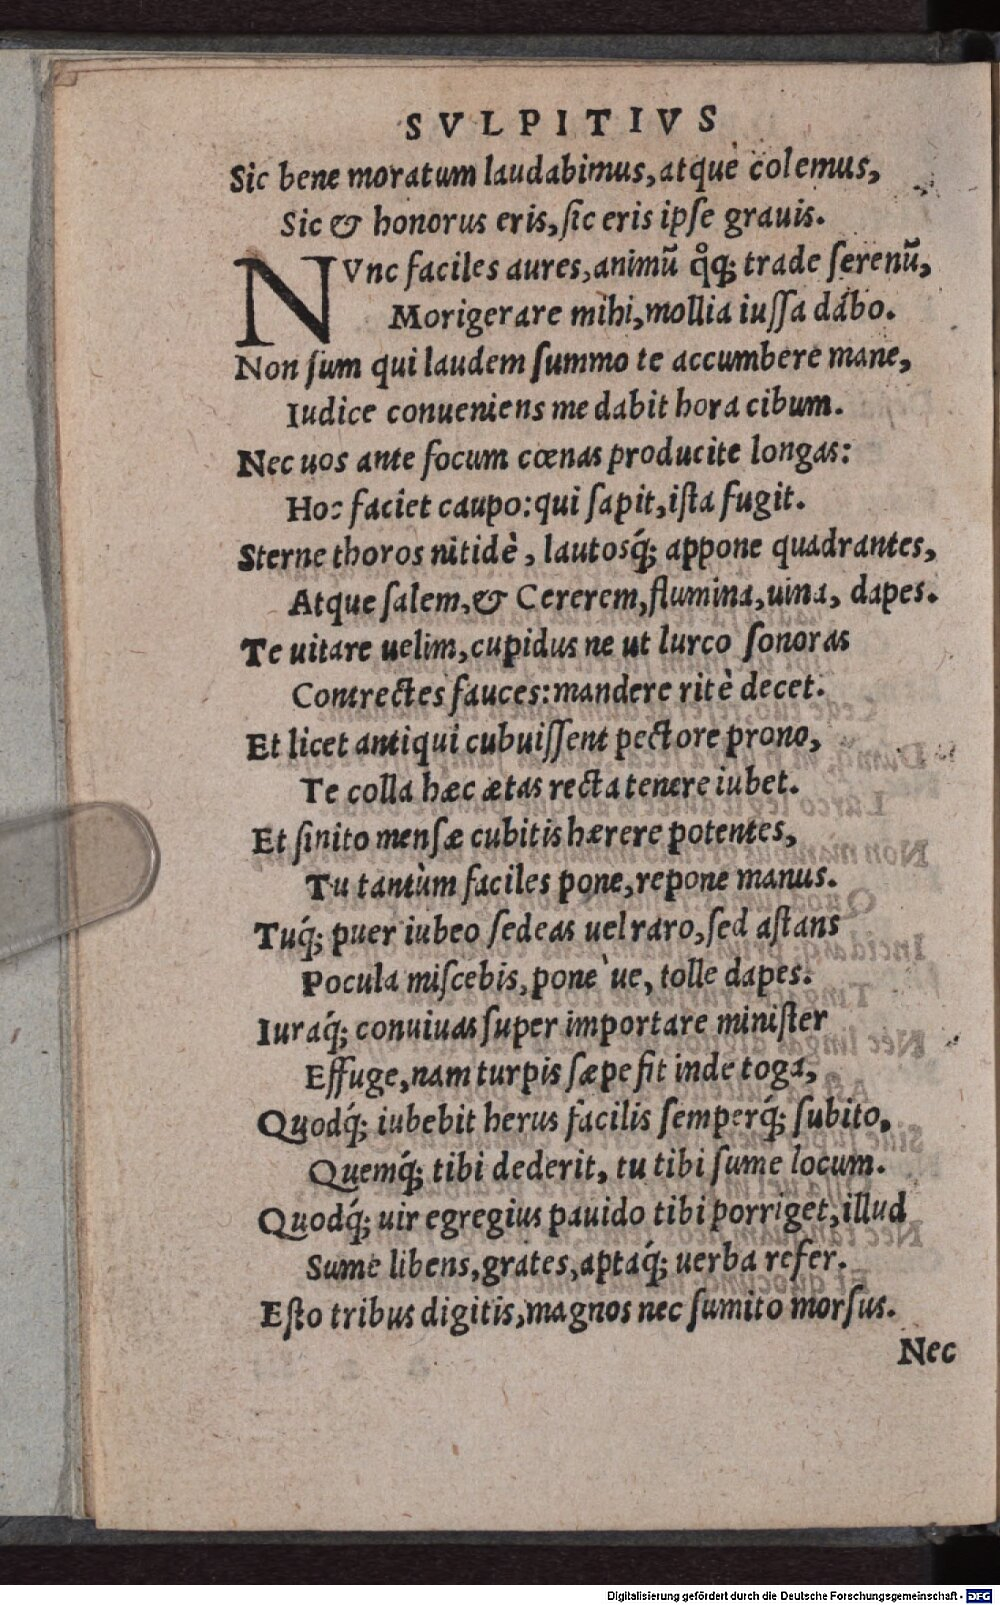 SVLPITIVS
Sic bene moratum laudabimus, atque colemus,
Sic & honorus eris, ſic eris ipſe grauis.
NVnc faciles aures, animũ qͦq; trade ſerenũ,
Morigerare mihi, mollia iuſſa dabo.
Non ſum qui laudem ſummo te accumbere mane,
Iudice conueniens me dabit hora cibum.
Nec uos ante focum cœnas producite longas:
Hoc faciet caupo: qui ſapit, iſta fugit.
Sterne thoros nitidè, lautosq́; appone quadrantes,
Atque ſalem, & Cererem, flumina, uina, dapes.
Te uitare uelim, cupidus ne ut lurco ſonoras
Contrectes fauces: mandere ritè decet.
Et licet antiqui cubuiſſent pectore prono,
Te colla hæc ætas recta tenere iubet.
Et ſinito menſæ cubitis hærere potentes,
Tu tantùm faciles pone, repone manus.
Tuq́; puer iubeo ſedeas uel raro, ſed aſtans
Pocula miſcebis, pone`ue, tolle dapes.
Iuraq́; conuiuas ſuper importare miniſter
Effuge, nam turpis ſæpe fit inde toga,
Quodq́; iubebit herus facilis ſemperq́; ſubito,
Quemq́; tibi dederit, tu tibi ſume locum.
Quodq́; uir egregius pauido tibi porriget, illud
Sume libens, grates, aptaq́; uerba refer.
Eſto tribus digitis, magnos nec ſumito morſus.
Nec
Digitalisierung gefördert durch die Deutsche Forschungsgemeinschaft - DFG